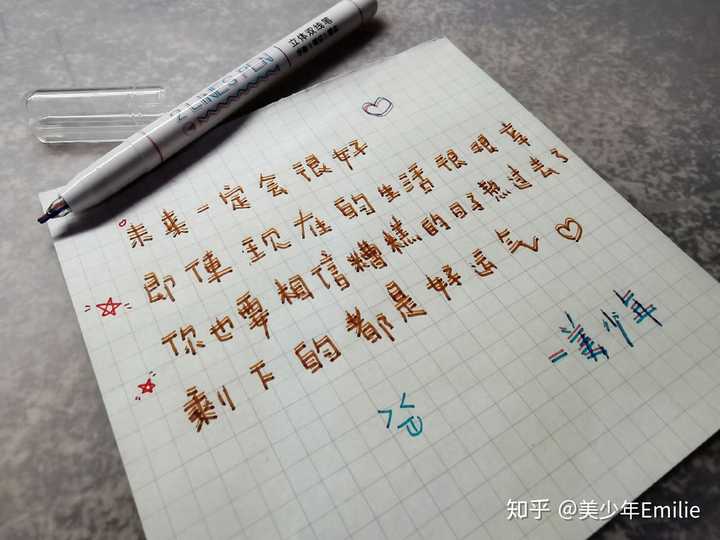 2 LINES PEN
立体双线笔
未来一定会很好
即使现在的生活很艰辛
你也要相信糟糕的日子熬过去了
剩下的都是好运气
—美少年
知乎 @美少年Emilie